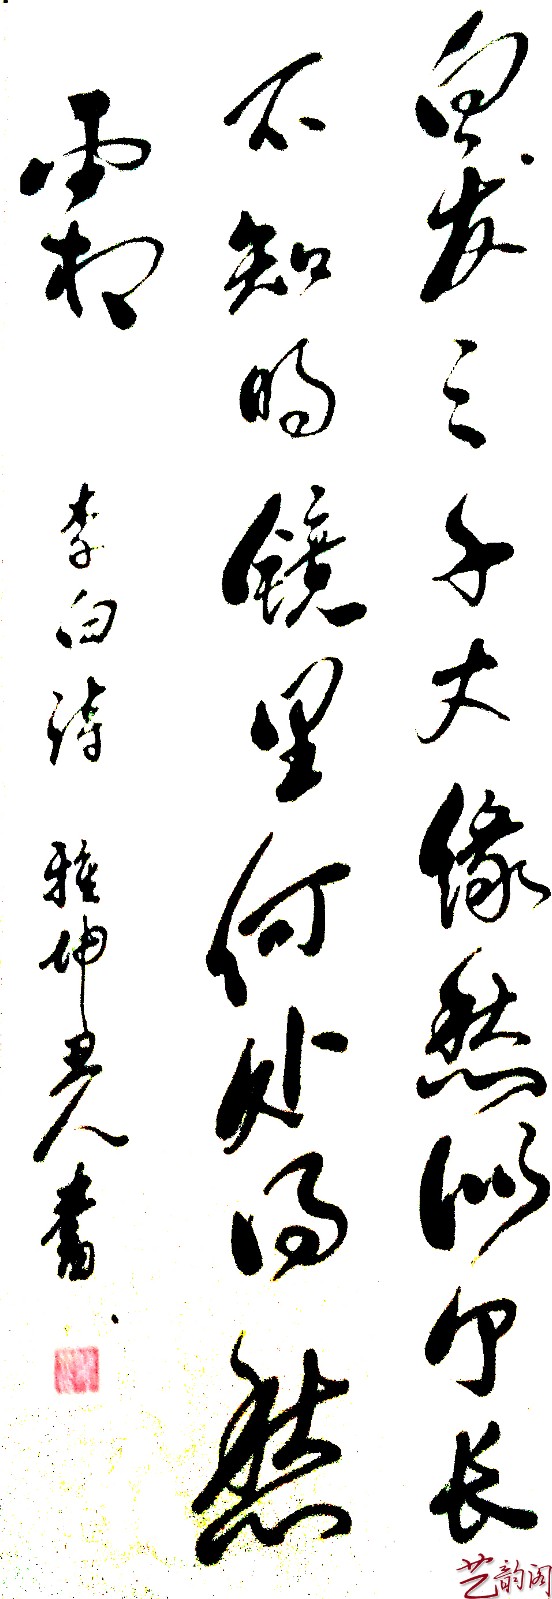 白发三千丈缘愁似个长
不知明镜里何处得愁
霜
李白诗 雅坤 人书
艺韵阁